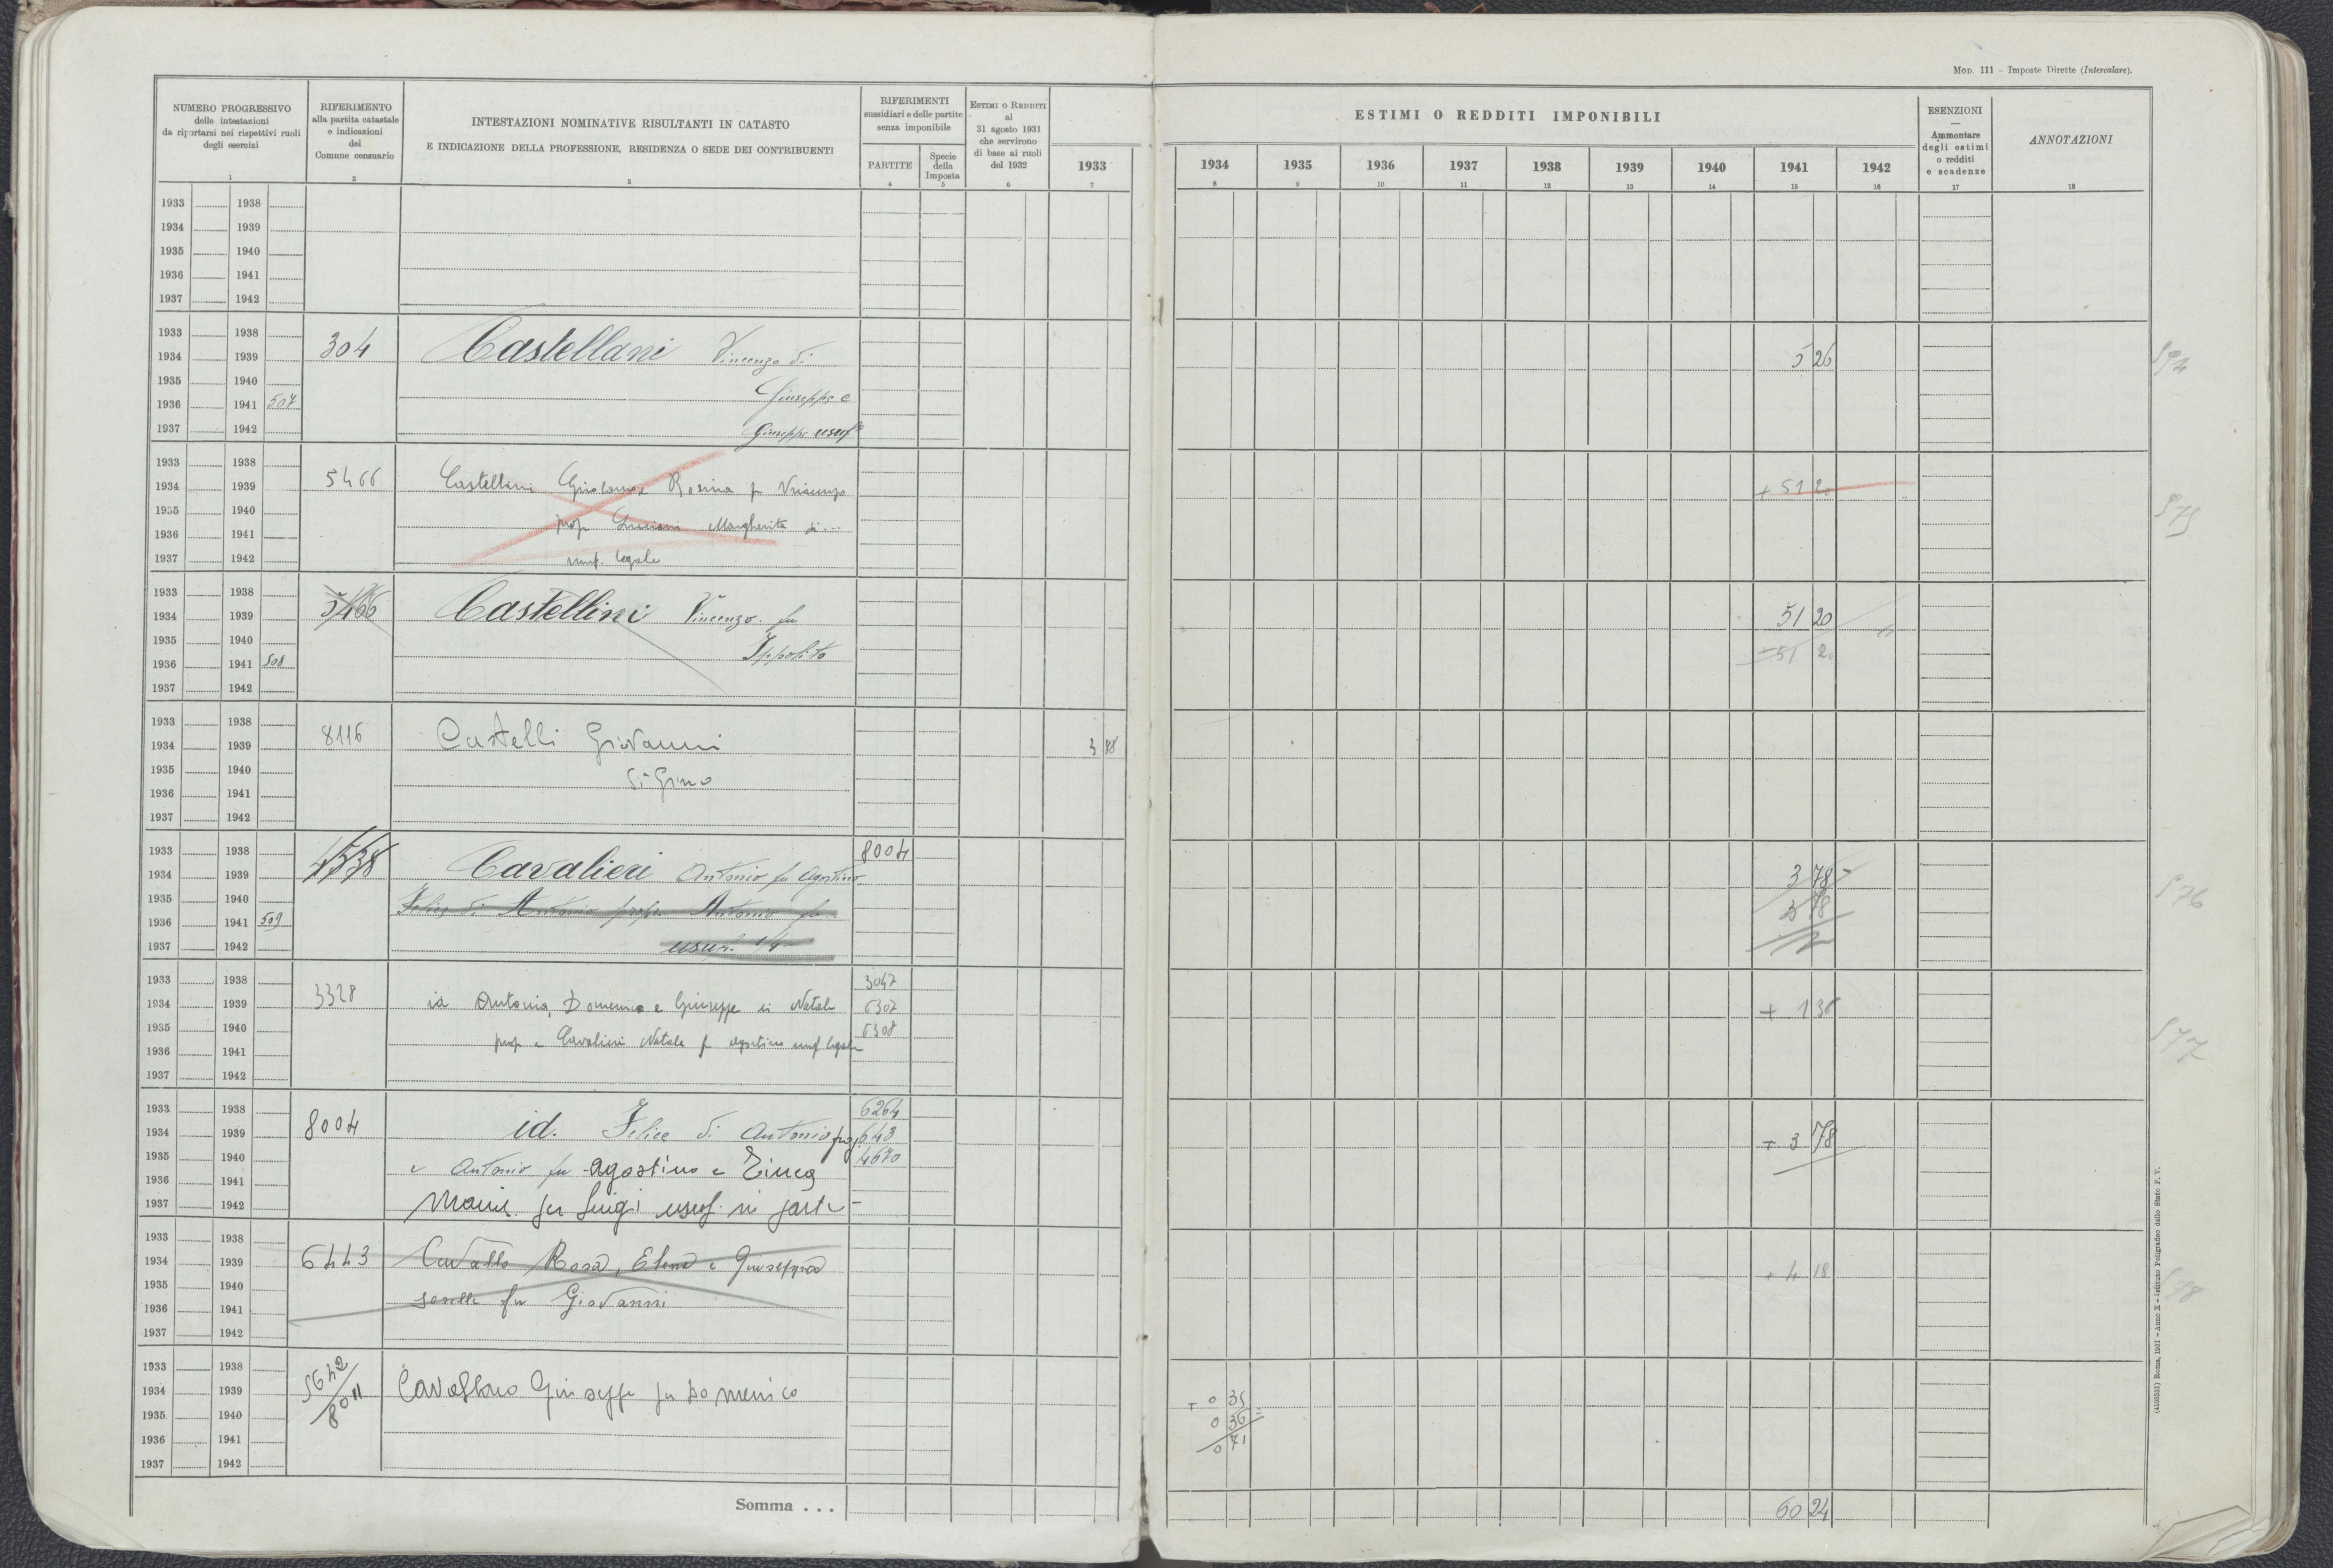 Mod. 111 - Imposte Dirette (Intercalare).
NUMERO PROGRESSIVO
delle intestazioni
da riportarsi nei rispettivi ruoli
degli esercizi
1
RIFERIMENTO
alla partita catastale
e indicazioni
del
Comune censuario
2
INTESTAZIONI NOMINATIVE RISULTANTI IN CATASTO
E INDICAZIONE DELLA PROFESSIONE, RESIDENZA O SEDE DEI CONTRIBUENTI
3
RIFERIMENTI
sussidiari e delle partite
senza imponibile
PARTITE
4
Specie
della
Imposta
5
Estimi o Redditi
al
31 agosto 1931
che servirono
di base ai ruoli
del 1932
6
1933
7
ESTIMI O REDDITI IMPONIBILI
1934 1935 1936 1937 1938 1939 1940 1941 1942
8 9 10 11 12 13 14 15 16
ESENZIONI
—
Ammontare
degli estimi
o redditi
e scadenze
17
ANNOTAZIONI
18
1933 1938
1934 1939
1935 1940
1936 1941
1937 1942
1933 1938
1934 1939 304 Castellani Vincenzo di 5 26
1935 1940 Giuseppe e
1936 1941 507
1937 1942 Giuseppe usuf
1933 1938
1934 1939 5466 Castellini Girolamo e Rosina fu Vincenzo + 51 20
1935 1940 prop Luciani Margherita di ...
1936 1941
1937 1942 usuf. legale
575
1933 1938
1934 1939 5466 Castellini Vincenzo fu 51 20
1935 1940 Ippolito - 51 20
1936 1941 508
1937 1942
1933 1938
1934 1939 8116 Castelli Giovanni 3 88
1935 1940 di Gino
1936 1941
1937 1942
1933 1938 8004
1934 1939 4538 Cavalieri Antonio fu Agostino 3 78
1935 1940 Felice di Antonio prop. Antonio fu 3 78
1936 1941 509
1937 1942 usuf. 1/4
576
1933 1938 3047
1934 1939 3328 id Antonia, Domenico e Giuseppe di Natale 6307 + 1 36
1935 1940 prop e Cavalieri Natale fu Agostino usuf legale 6308
1936 1941
1937 1942
577
1933 1938 6264
1934 1939 8004 id. Felice di Antonio prop 643 + 3 78
1935 1940 e Antonio fu Agostino e Zinca 4670
1936 1941
1937 1942 Maria fu Luigi usuf. in parte
1933 1938
1934 1939 6443 Cavallo Rosa, Elena e Giuseppa + 4 18
1935 1940 sorelle fu Giovanni
1936 1941
1937 1942
1933 1938 5642
1934 1939 8011 Cavallaro Giuseppe fu Domenico + 0 35
1935 1940 0 36
1936 1941 0 71
1937 1942
Somma . . . 60 24
(4108531) Roma, 1931 - Anno X - Istituto Poligrafico dello Stato P. V.